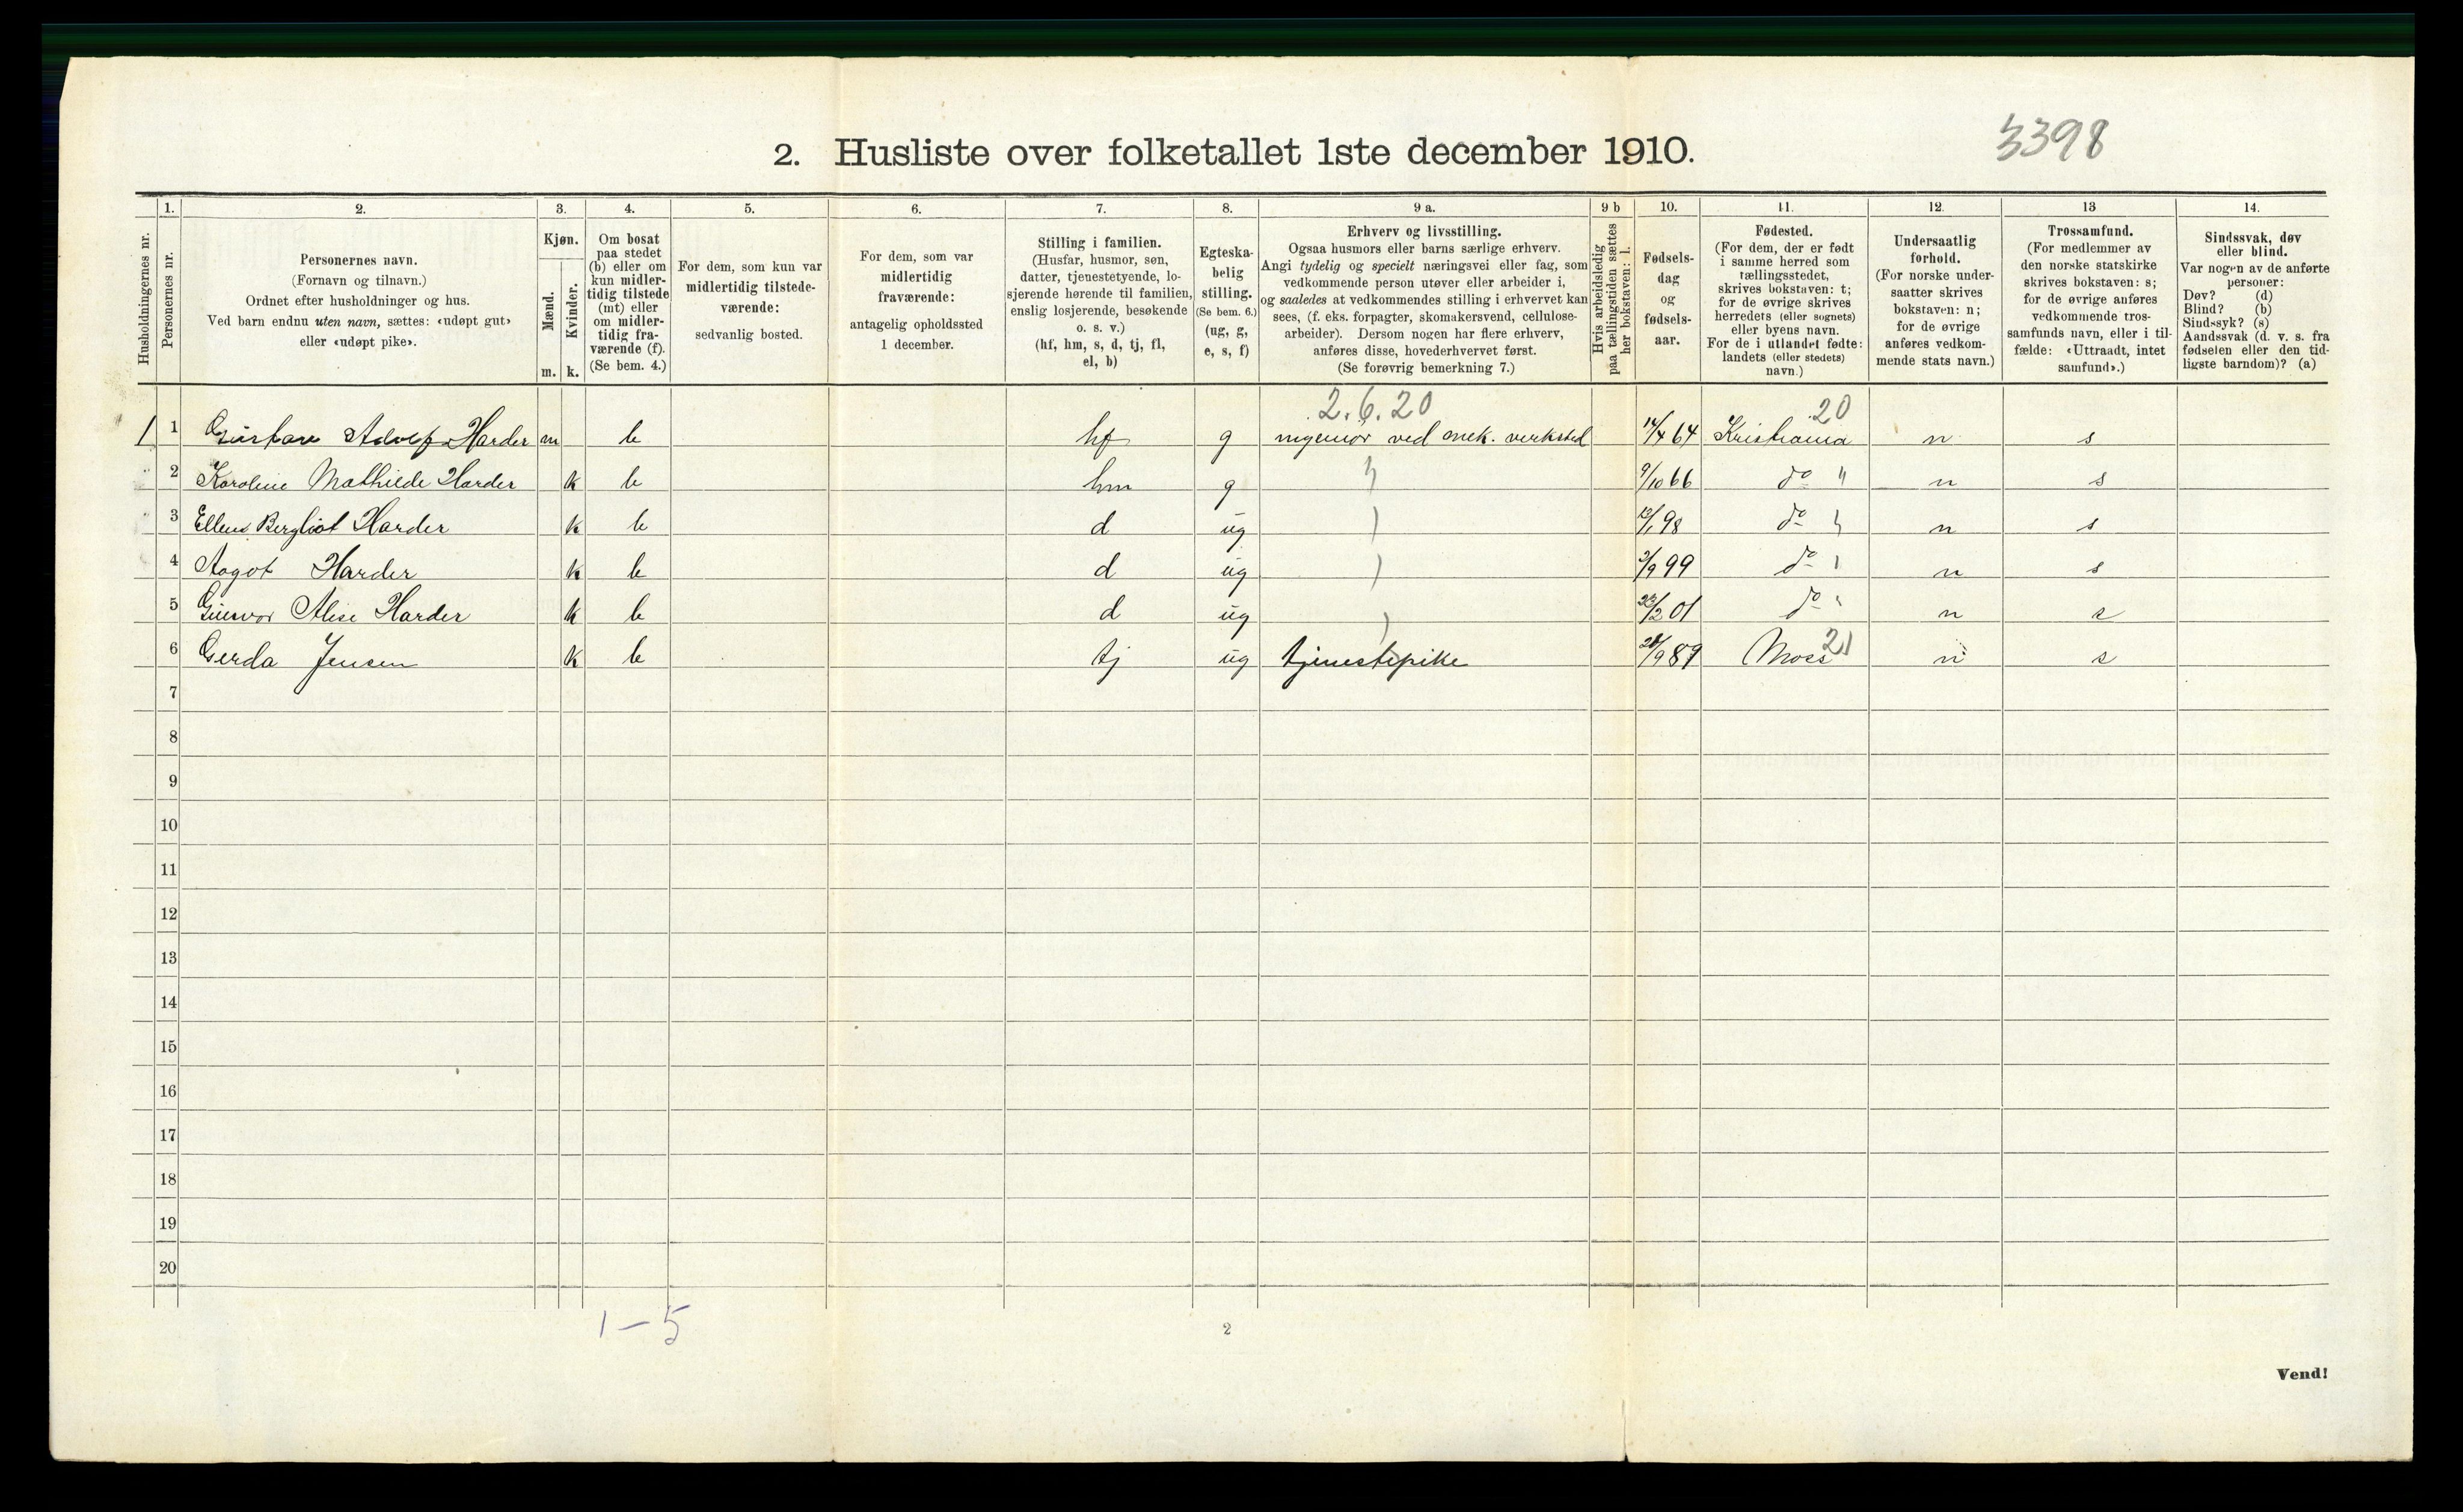 3398
2. Husliste over folketallet 1ste december 1910.
1. 2. 3. 4. 5. 6. 7. 8. 9 a. 9 b 10. 11. 12. 13 14.
Husholdningernes nr.
Personernes nr.
Personernes navn.
(Fornavn og tilnavn.)
Ordnet efter husholdninger og hus.
Ved barn endnu uten navn, sættes: «udøpt gut»
eller «udøpt pike».
Kjøn.
Mænd.
Kvinder.
m. k.
Om bosat
paa stedet
(b) eller om
kun midler-
tidig tilstede
(mt) eller
om midler-
tidig fra-
værende (f).
(Se bem. 4.)
For dem, som kun var
midlertidig tilstede-
værende:
sedvanlig bosted.
For dem, som var
midlertidig
fraværende:
antagelig opholdssted
1 december.
Stilling i familien.
(Husfar, husmor, søn,
datter, tjenestetyende, lo-
sjerende hørende til familien,
enslig losjerende, besøkende
o. s. v.)
(hf, hm, s, d, tj, fl,
el, b)
Egteska-
belig
stilling.
(Se bem. 6.)
(ug, g,
e, s, f)
Erhverv og livsstilling.
Ogsaa husmors eller barns særlige erhverv.
Angi tydelig og specielt næringsvei eller fag, som
vedkommende person utøver eller arbeider i,
og saaledes at vedkommendes stilling i erhvervet kan
sees, (f. eks. forpagter, skomakersvend, cellulose-
arbeider). Dersom nogen har flere erhverv,
anføres disse, hovederhvervet først.
(Se forøvrig bemerkning 7.)
Hvis arbeidsledig
paa tællingstiden sættes
her bokstaven: l.
Fødsels-
dag
og
fødsels-
aar.
Fødested.
(For dem, der er født
i samme herred som
tællingsstedet,
skrives bokstaven: t;
for de øvrige skrives
herredets (eller sognets)
eller byens navn.
For de i utlandet fødte:
landets (eller stedets)
navn.)
Undersaatlig
forhold.
(For norske under-
saatter skrives
bokstaven: n;
for de øvrige
anføres vedkom-
mende stats navn.)
Trossamfund.
(For medlemmer av
den norske statskirke
skrives bokstaven: s;
for de øvrige anføres
vedkommende tros-
samfunds navn, eller i til-
fælde: «Uttraadt, intet
samfund».)
Sindssvak, døv
eller blind.
Var nogen av de anførte
personer:
Døv? (d)
Blind? (b)
Sindssyk? (s)
Aandssvak (d. v. s. fra
fødselen eller den tid-
ligste barndom)? (a)
2.6.20 20
1 1 Gustav Adolf Harder m b hf g ingeniør ved mek. verksted 14/4 64 Kristiania n s
2 Karoline Mathilde Harder k b hm g 9/10 66 do " n s
3 Ellen Bergliot Harder k b d ug 98 do n s
4 Aagot Harder k b d ug 3/9 99 do n s
5 Gunvor Alise Harder k b d ug /2 01 do n s
6 Gerda Jensen k b tj ug tjenestepike 28/9 89 Moss 21 n s
7
8
9
10
11
12
13
14
15
16
17
18
19
20
1-5
2
Vend!